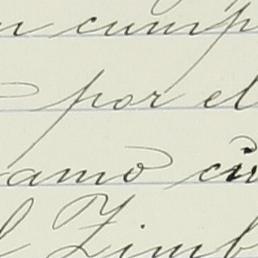 cump
por el
amo cu
Zimb